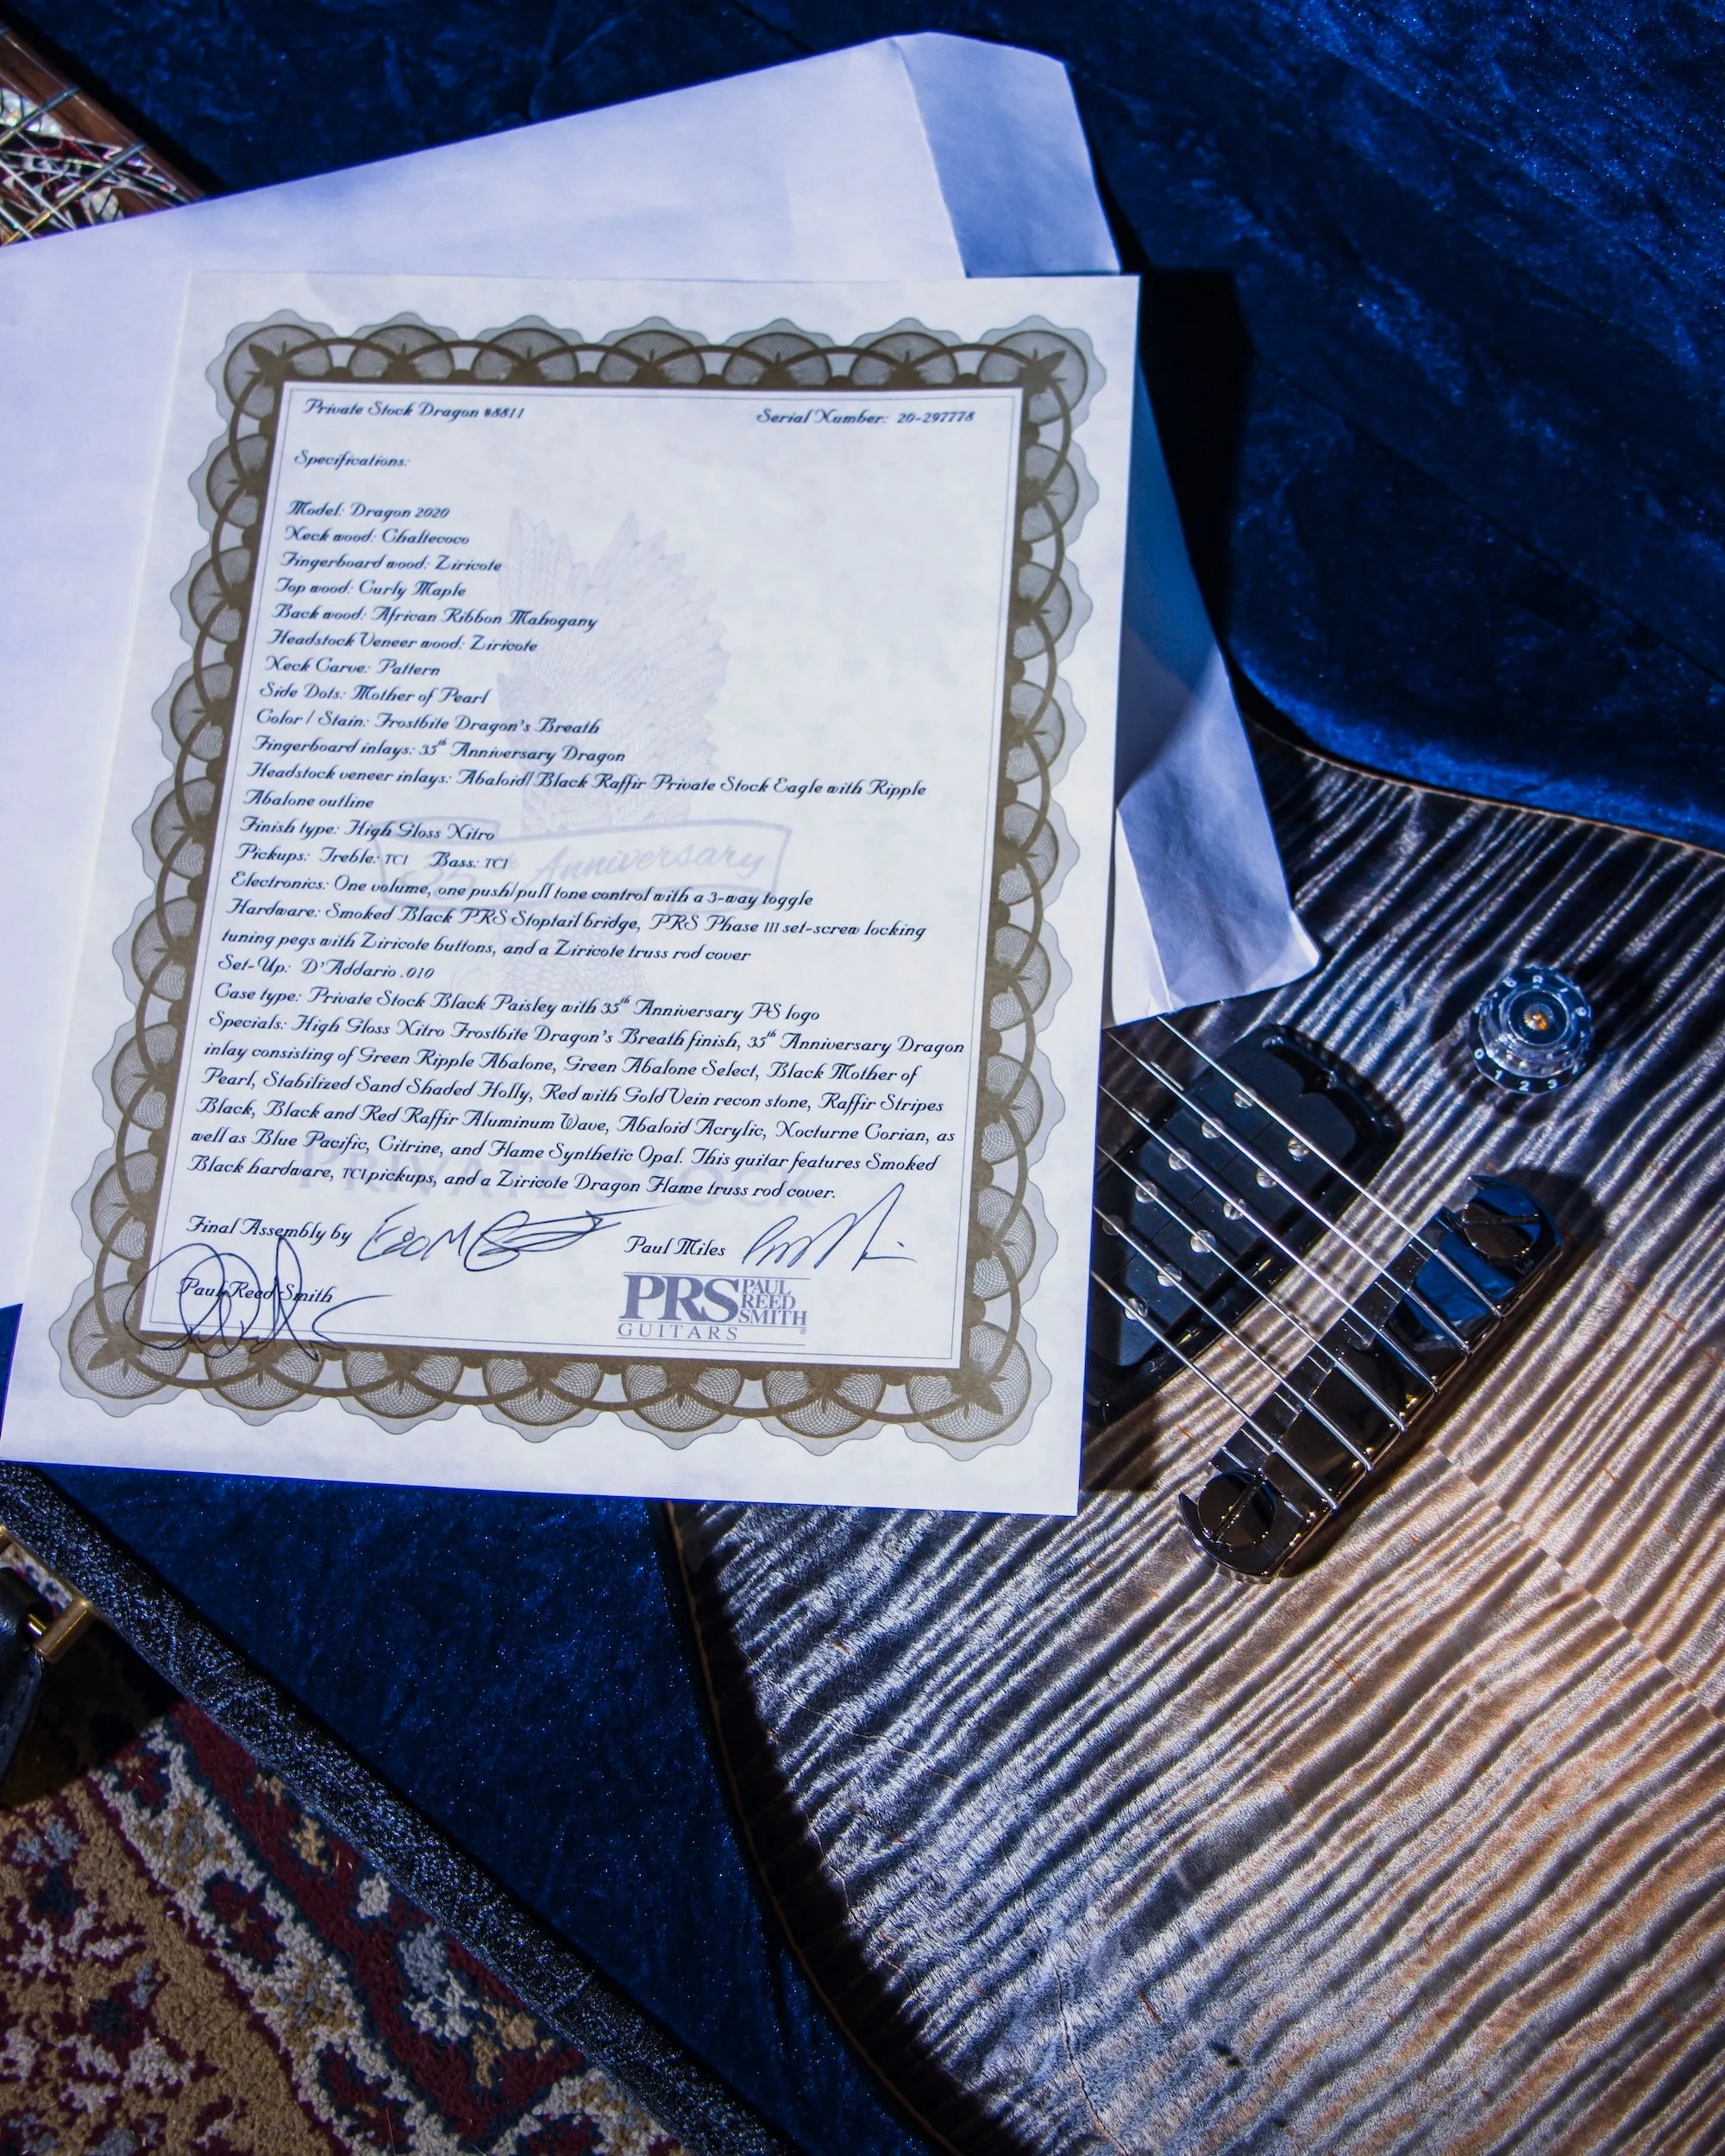 Private Stock Dragon #8811 Serial Number: 20-297778
Specifications:
Model: Dragon 2020
Neck wood: Chaltecoco
Fingerboard wood: Ziricote
Top wood: Curly Maple
Back wood: African Ribbon Mahogany
Headstock Veneer wood: Ziricote
Neck Carve: Pattern
Side Dots: Mother of Pearl
Color / Stain: Frostbite Dragon's Breath
Fingerboard inlays: 35th Anniversary Dragon
Headstock veneer inlays: Abaloid/Black Raffir Private Stock Eagle with Ripple
Abalone outline
Finish type: High Gloss Nitro
Pickups: Treble: TCI Bass: TCI
35th Anniversary
Electronics: One volume, one push/pull tone control with a 3-way toggle
Hardware: Smoked Black PRS Stoptail bridge, PRS Phase III set-screw locking
tuning pegs with Ziricote buttons, and a Ziricote truss rod cover
Set-Up: D'Addario .010
Case type: Private Stock Black Paisley with 35th Anniversary PS logo
Specials: High Gloss Nitro Frostbite Dragon's Breath finish, 35th Anniversary Dragon
inlay consisting of Green Ripple Abalone, Green Abalone Select, Black Mother of
Pearl, Stabilized Sand Shaded Holly, Red with Gold Vein recon stone, Raffir Stripes
Black, Black and Red Raffir Aluminum Wave, Abaloid Acrylic, Nocturne Corian, as
well as Blue Pacific, Citrine, and Flame Synthetic Opal. This guitar features Smoked
Black hardware, TCI pickups, and a Ziricote Dragon Flame truss rod cover.
PRIVATE STOCK
Final Assembly by
Paul Miles
Paul Reed Smith
PRS PAUL
REED
SMITH
GUITARS